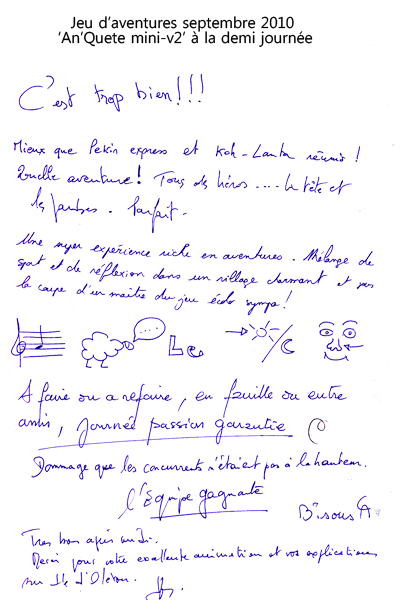 Jeu d'aventures septembre 2010
'An'Quete mini-v2' à la demi journée
C'est trop bien!!!
Mieux que Pekin express et Koh-Lanta réunis!
Quelle aventure! Tous des héros .... la tête et
les jambes. Parfait.
Une super expérience riche en aventures. Mélange de
sport et de réflexion dans un village charmant et sous
la coupe d'un maitre du jeu écolo sympa!
...
Le
A faire ou a refaire, en famille ou entre
amis, journée passion garantie
Dommage que les concurrents n'était pas à la hauteur.
l'Equipe gagnante
Bisous
Tres bon après midi.
Merci pour votre excellente animation et vos explications
sur Ile d'Oléron.